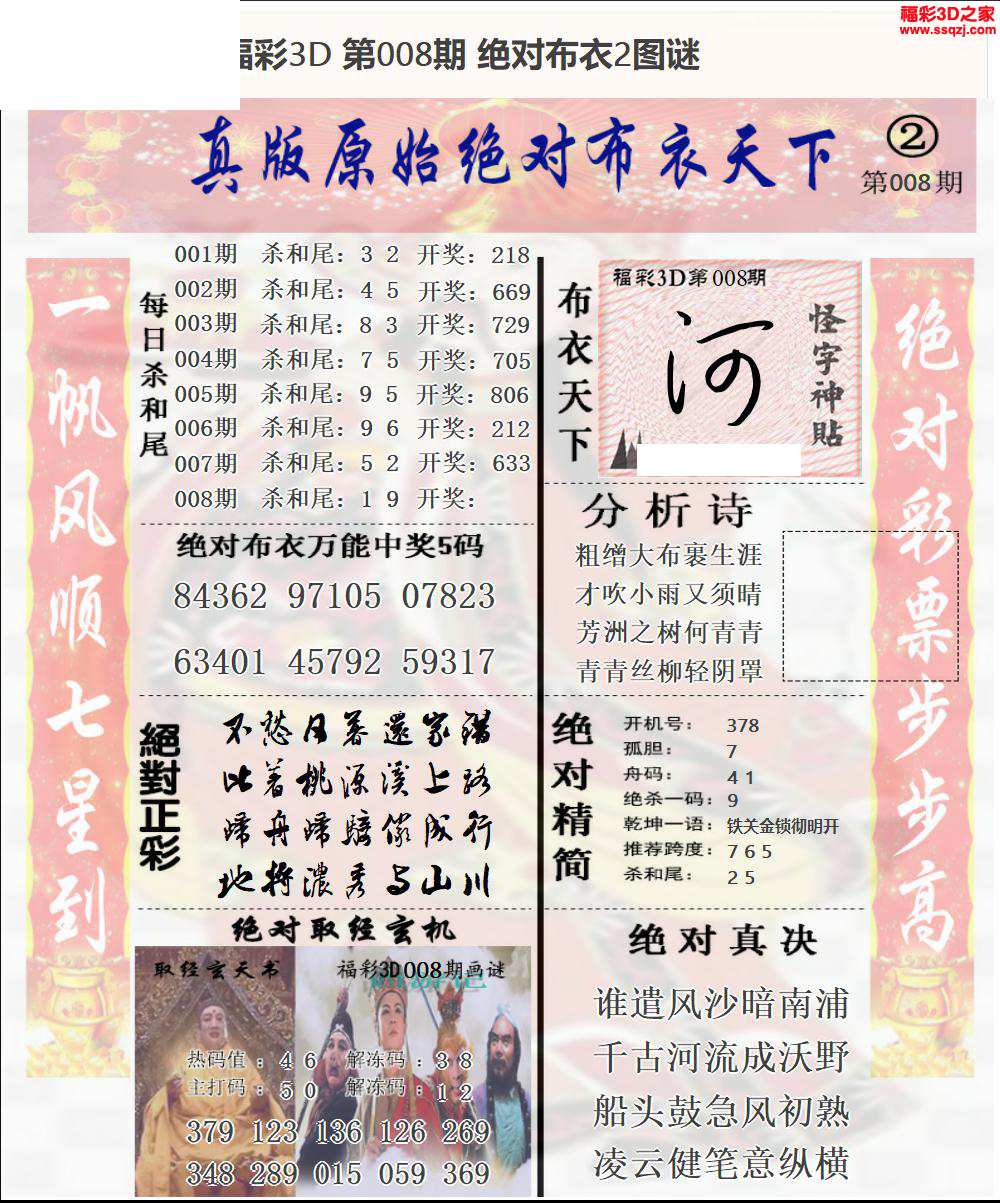 福彩3D之家
www.ssqzj.com
福彩3D 第008期 绝对布衣2图谜
真版原始绝对布衣天下
②
第008期
一帆风顺七星到
每日杀和尾
001期 杀和尾：3 2 开奖：218
002期 杀和尾：4 5 开奖：669
003期 杀和尾：8 3 开奖：729
004期 杀和尾：7 5 开奖：705
005期 杀和尾：9 5 开奖：806
006期 杀和尾：9 6 开奖：212
007期 杀和尾：5 2 开奖：633
008期 杀和尾：1 9 开奖：
绝对布衣万能中奖5码
84362 97105 07823
63401 45792 59317
絕對正彩
不愁日暮還家錯
此着桃源溪上路
歸舟歸騎儼成行
地捋濃秀与山川
绝对取经玄机
取经玄天书
福彩3D008期画谜
热码值：4 6 解冻码：3 8
主打码：5 0 解冻码：1 2
379 123 136 126 269
348 289 015 059 369
布衣天下
福彩3D第008期
河
怪字神貼
分析诗
粗缯大布裹生涯
才吹小雨又须晴
芳洲之树何青青
青青丝柳轻阴罩
绝对精简
开机号：378
孤胆：7
舟码：4 1
绝杀一码：9
乾坤一语：铁关金锁彻明开
推荐跨度：7 6 5
杀和尾：2 5
绝对真决
谁遣风沙暗南浦
千古河流成沃野
船头鼓急风初熟
凌云健笔意纵横
绝对彩票步步高